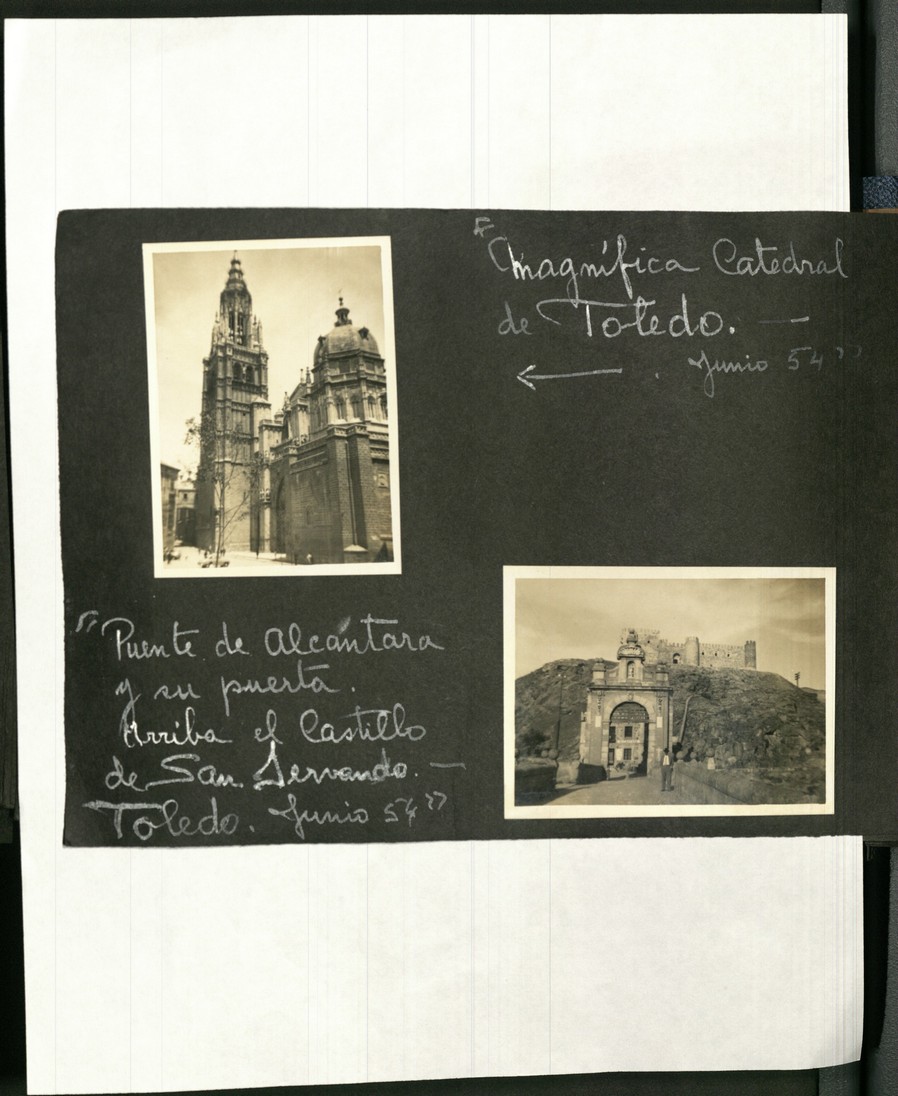 "Magnífica Catedral
de Toledo. —
← . Junio 54"
"Puente de Alcántara
y su puerta.
Arriba el Castillo
de San Servando. —
Toledo. Junio 54"